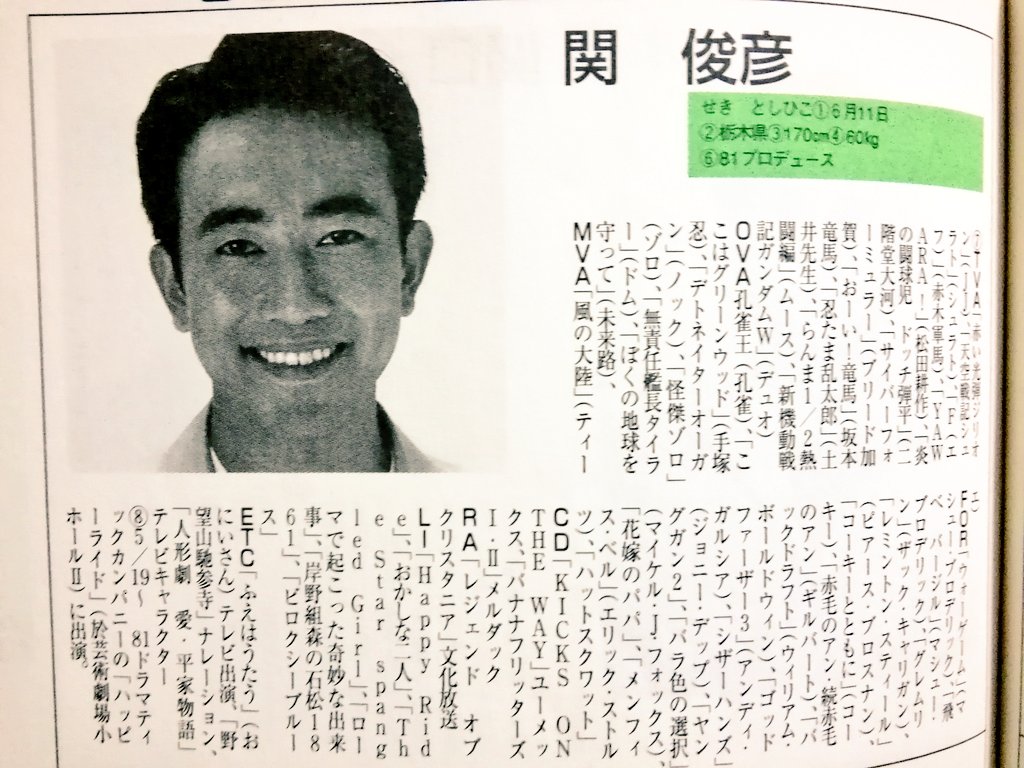 関　俊彦
せき　としひこ①6月11日
②栃木県③170cm④60kg
⑥81プロデュース
⑦TVA「赤い光弾ジリオ
ン」(JJ)、「天空戦記シュ
ラト」(シュラト)、「F(エ
フ)」(赤木軍馬)、「YAW
ARA！」(松田耕作)、「炎
の闘球児　ドッチ弾平」(二
階堂大河)「サイバーフォ
ーミュラー」(ブリード加
賀)、「おーい！竜馬」(坂本
竜馬)、「忍たま乱太郎」(土
井先生)、「らんま1/2熱
闘編」(ムース)、「新機動戦
記ガンダムW」(デュオ)
OVA「孔雀王」(孔雀)、「こ
こはグリーンウッド」(手塚
忍)、「デトネイターオーガ
ン」(ノック)、「怪傑ゾロ」
(ゾロ)、「無責任艦長タイラ
ー」(ドム)、「ぼくの地球を
守って」(未来路)、
MVA「風の大陸」(ティー
エ)
FOR「ウォーゲーム」(マ
シュー・ブロデリック)、「飛
べ、バージル」(マシュー・
ブロデリック)、「グレムリ
ン」(ザック・ギャリガン)、
「レミントン・スティール」
(ピアース・ブロスナン)、
「コーキーとともに」(コー
キー)、「赤毛のアン・続赤毛
のアン」(ギルバート)、「バ
ックドラフト」(ウィリアム・
ボールドウィン)、「ゴッド
ファーザー3」(アンディ・
ガルシア)、「シザーハンズ」
(ジョニー・デップ)、「ヤン
グガン2」、「バラ色の選択」
(マイケル・J・フォックス)、
「花嫁のパパ」、「メンフィ
ス・ベル」(エリック・ストル
ツ)、「ハットスクワット」
CD「KICKS ON
THE WAY」ユーメッ
クス、「バナナフリッターズ
I・II」メルダック
RA「レジェンド　オブ
クリスタニア」文化放送
LI「Happy Rid
e」、「おかしな二人」、「Th
e Star spang
led Girl」、「ロー
マで起こった奇妙な出来
事」、「岸野組森の石松18
61」、「ビロクシーブルー
ス」
ETC「ふえはうたう」(お
にいさん)テレビ出演、「野
望山馳参寺」ナレーション、
「人形劇　愛・平家物語」
テレビキャラクター
⑧5/19〜　81ドラマティ
ックカンパニーの「ハッピ
ーライド」(於芸術劇場小
ホールII)に出演。